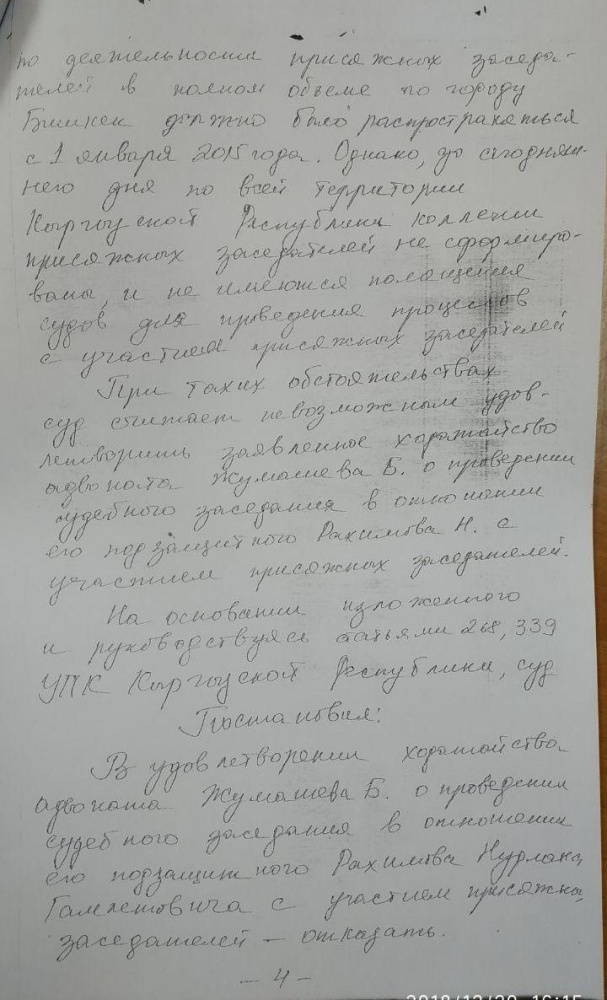 по деятельности присяжных заседа-
телей в полном объеме по городу
Бишкек должно было распространяться
с 1 января 2015 года. Однако, до сегодняш-
него дня по всей территории
Кыргызской Республики коллегии
присяжных заседателей не сформиро-
ваны, и не имеются помещения
судов для проведения процессов
с участием присяжных заседателей
При таких обстоятельствах
суд считает невозможным удов-
летворить заявленное ходатайство
адвоката Жумашева Б. о проведении
судебного заседания в отношении
его подзащитного Рахимова Н. с
участием присяжных заседателей.
На основании изложенного
и руководствуясь статьями 268, 339
УПК Кыргызской Республики, суд
Постановил:
В удовлетворении ходатайства
адвоката Жумашева Б. о проведении
судебного заседания в отношении
его подзащитного Рахимова Нурлана
с участием присяжных
заседателей – отказать.
– 4 –
2018/12/20 16:15